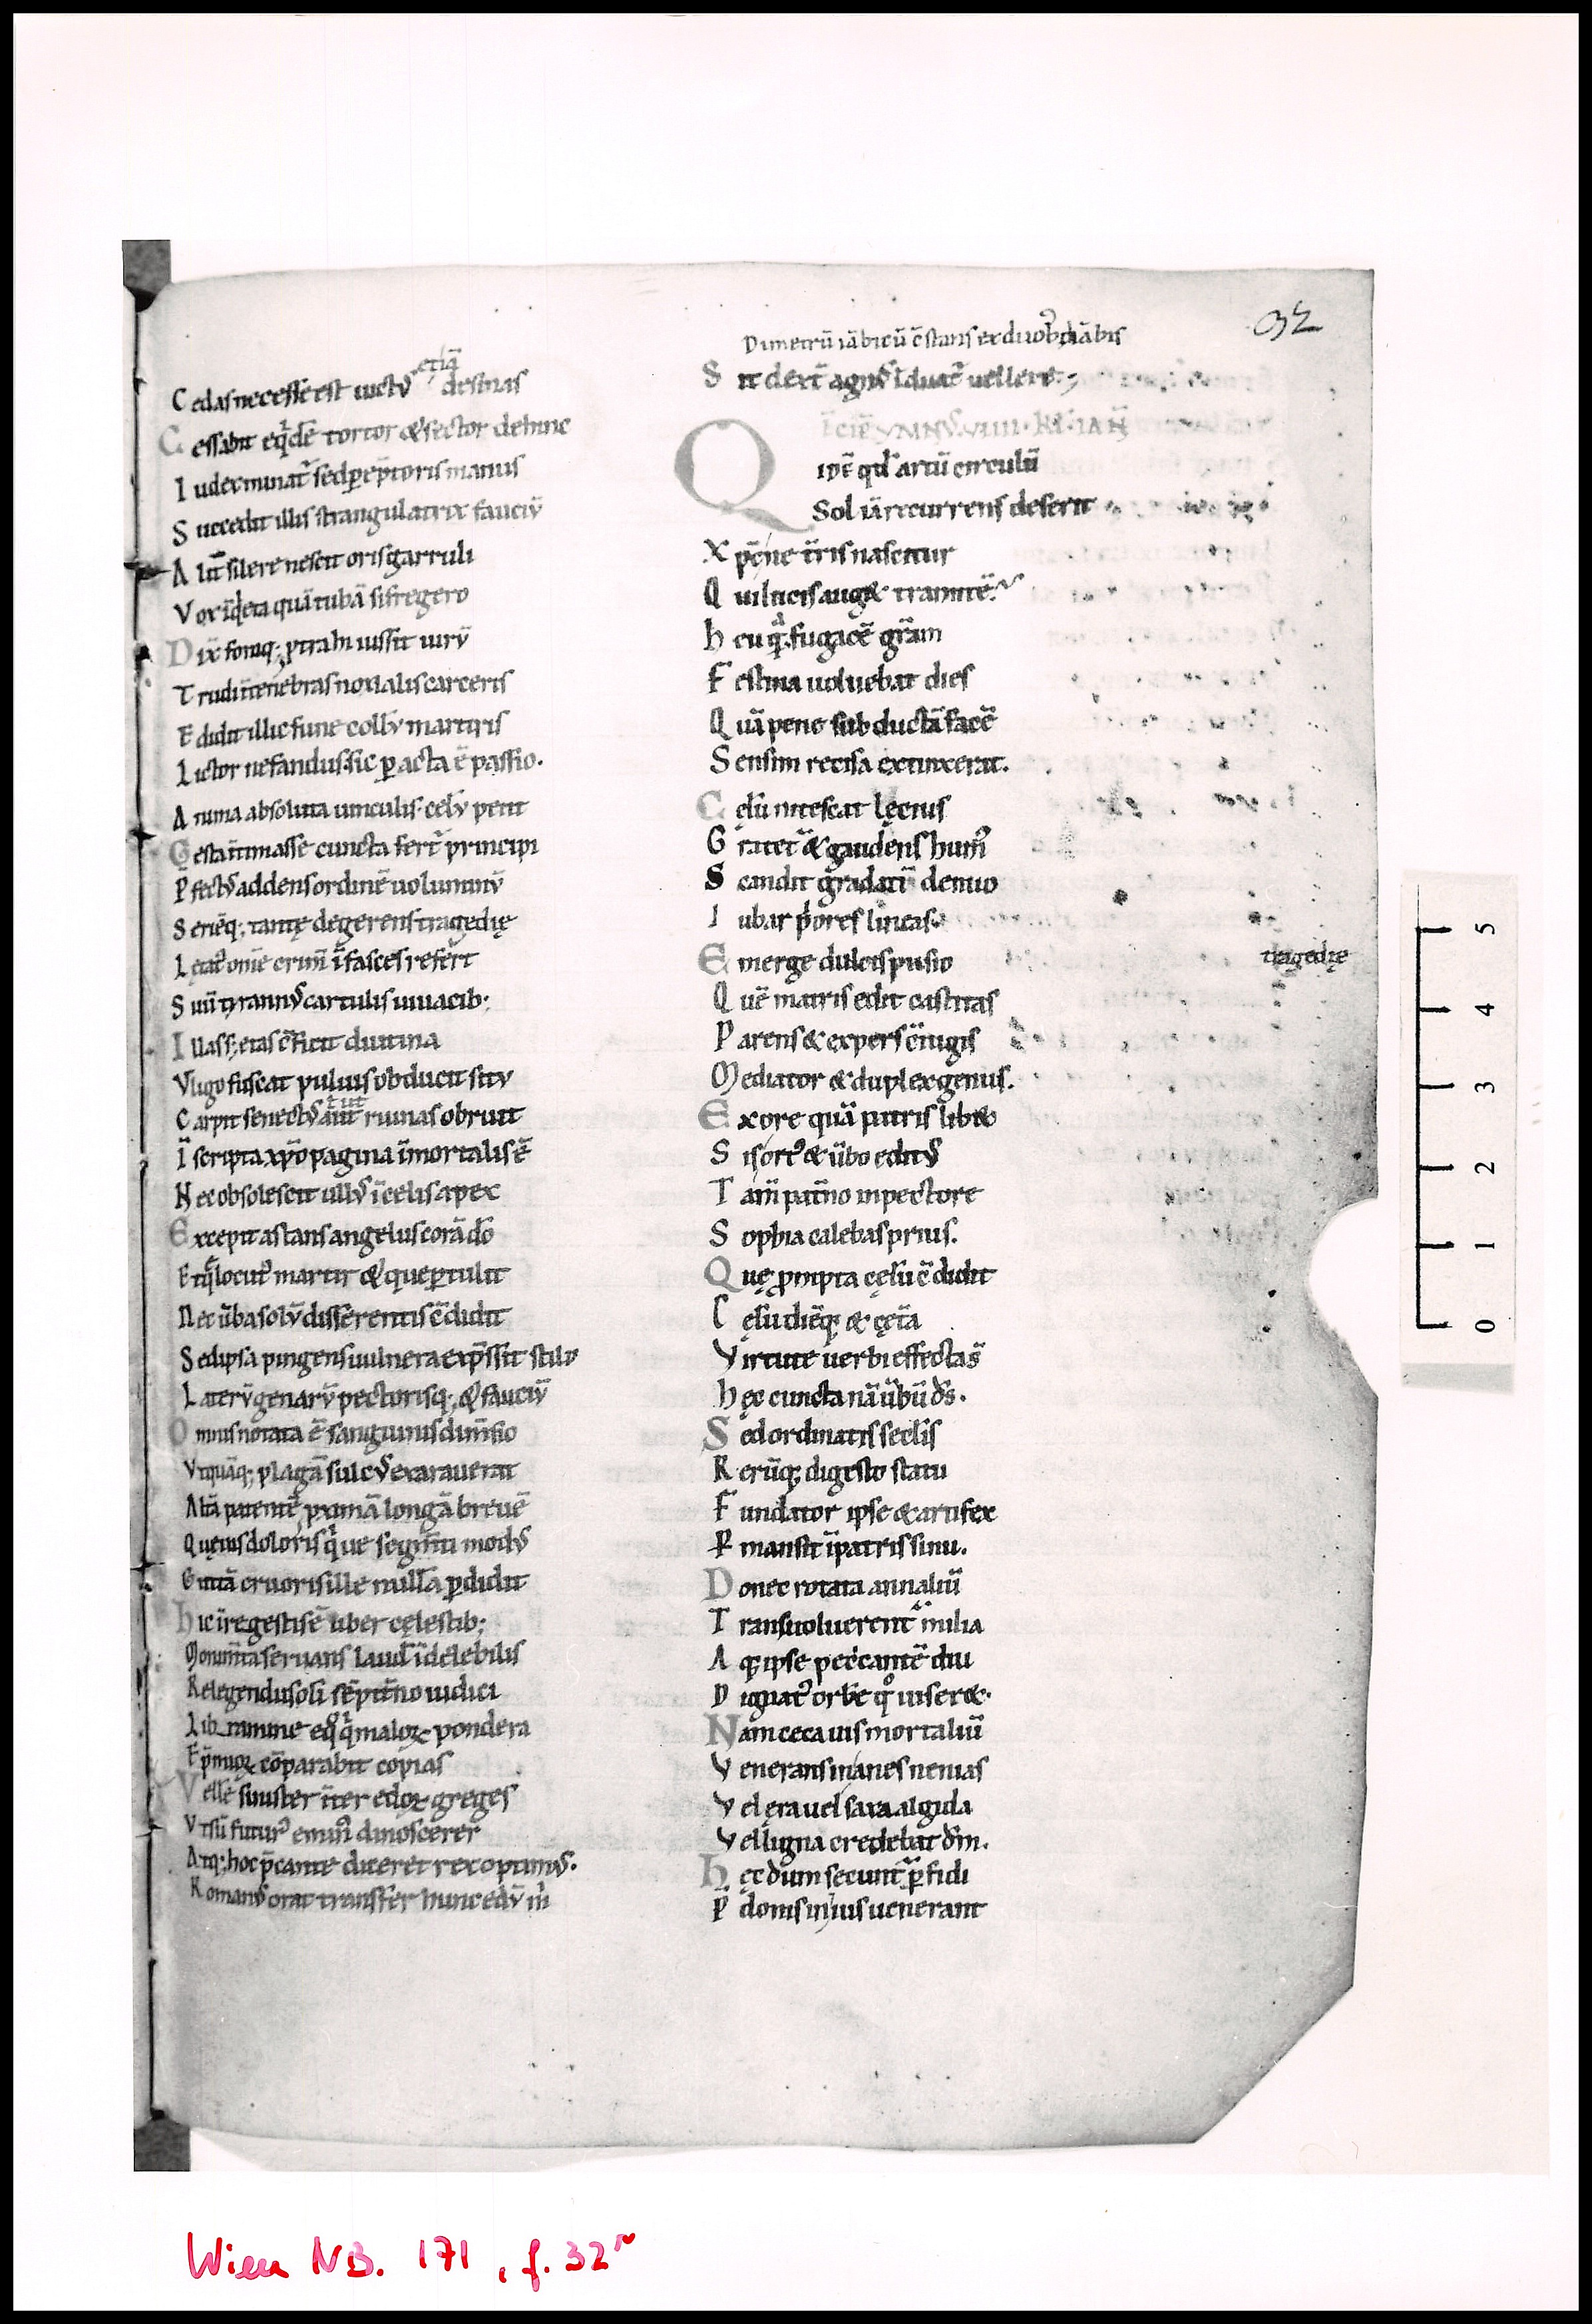 32
etiā
Cedas necesse est uictꝰ destinas
Cessabit eqͥdē tortor & sector dehinc
Iudex minat᷑ sed ꝑēptoris manus
Succedit illis strangulatrix fauciū
Alit᷑ silere nescit oris garruli
Vox īqͥeta quā tubā si fregero
Dix̄ foroq; ꝓtrahi iussit uirū
Trudi ī tenebras noxialis carceris
Elidit illic fune collū martiris
Lictor nefandus sic ꝑacta ē passio.
Anima absoluta uinculis celū petit
Gesta ītimasse cuncta fert᷑ principi
P̄fectꝰ addens ordinē uoluminū
Seriēq; tantę degerens tragedię
Lętatꝰ om̄e crim̄ ī fasces refert
Suū tyrannꝰ cartulis uiuacib;
Illas s; etas c̄ficit diutina
Vligo fuscat puluis obducit sitv
t ut
Carpit senectꝰ aut ruinas obruit
Īscripta xp̄o pagina īmortalis ē
Nec obsolescit ullꝰ ī celis apex
Excepit astans angelus corā dō
Et q̄ locutꝰ martir & que ꝑtulit
Nec ūba solū disserentis c̄didit
Sed ipsa pingens uulnera exp̄ssit stilo
Laterū genarū pectorisq; & fauciū
Omnis notata ē sanguinis dim̄sio
Vt quāq; plagā sulcꝰ exarauerit
Altā patentē ꝓximā longā breuē
Quę uis doloris qͥue segm̄ti modꝰ
Guttā cruoris ille nullā ꝑdidit
Hic ī regestis ē liber cęlestib;
Monum̄ta seruans laudͥ īdelebilis
Relegendus oli sēpit̄no iudici
Libramine eqͦ qͥ maloꝝ pondera
Et p̄mioꝝ cōparabit copias
Vellē sinister īter edoꝝ greges
Vt sū futurꝰ eminꝰ dinoscerer
Atq; hoc p̄cante diceret rex optimꝰ.
Romanꝰ orat transfer hunc edū m̄
Dimetrū iābicū c̄stans ex duobꝰ diābis
Sit dext᷑ agnꝰ īduat᷑ uellere;
YMNVS. VIIII. KL. IAN̄
Qid ē qd̄ artū circulū
Sol iā recurrens deserit
Xp̄c ne t̄ris nascitur
Qui lucis auget tramitē.
Heu qͣ fugacē gr̄am
Festina uoluebat dies
Quā pene subductā facē
Sensim recisa extinxerat.
Cęlū nitescat lętius
Gratet᷑ & gaudens humꝰ
Scandit gradatī denuo
Iubar p̄ores lineas.
Emerge dulcis pusio
tragedię
Quē matris edit castitas
Parens & expers c̄iugis
Mediator & duplex genus.
Ex ore quālibet patris
Sis ortꝰ & ūbo editꝰ
Tam̄ pat̄no in pectore
Sophia calebas prius.
Quę ꝓmpta cęlū c̄didit
Cęlū diēq; & cęt̄a
Virtute uerbi effecta s̄
Hęc cuncta nā ūbū ds̄.
Sed ordinatis seclis
Rerūq; digesto statu
Fundator ipse & artifex
Pmansit ī patris sinu.
Donec rotata annaliū
Transuoluerent᷑ milia
Atq; ipse peccantē diu
Dignatꝰ orbē qͦ uiseret.
Nam ceca uis mortaliū
Venerans inanes nenias
Vel ęra uel saxa algida
Vel ligna credebat dm̄.
Hęc dum secunt᷑ ꝑfidi
Pdonis in ius uenerant
0 1 2 3 4 5
Wien NB. 171, f. 32r